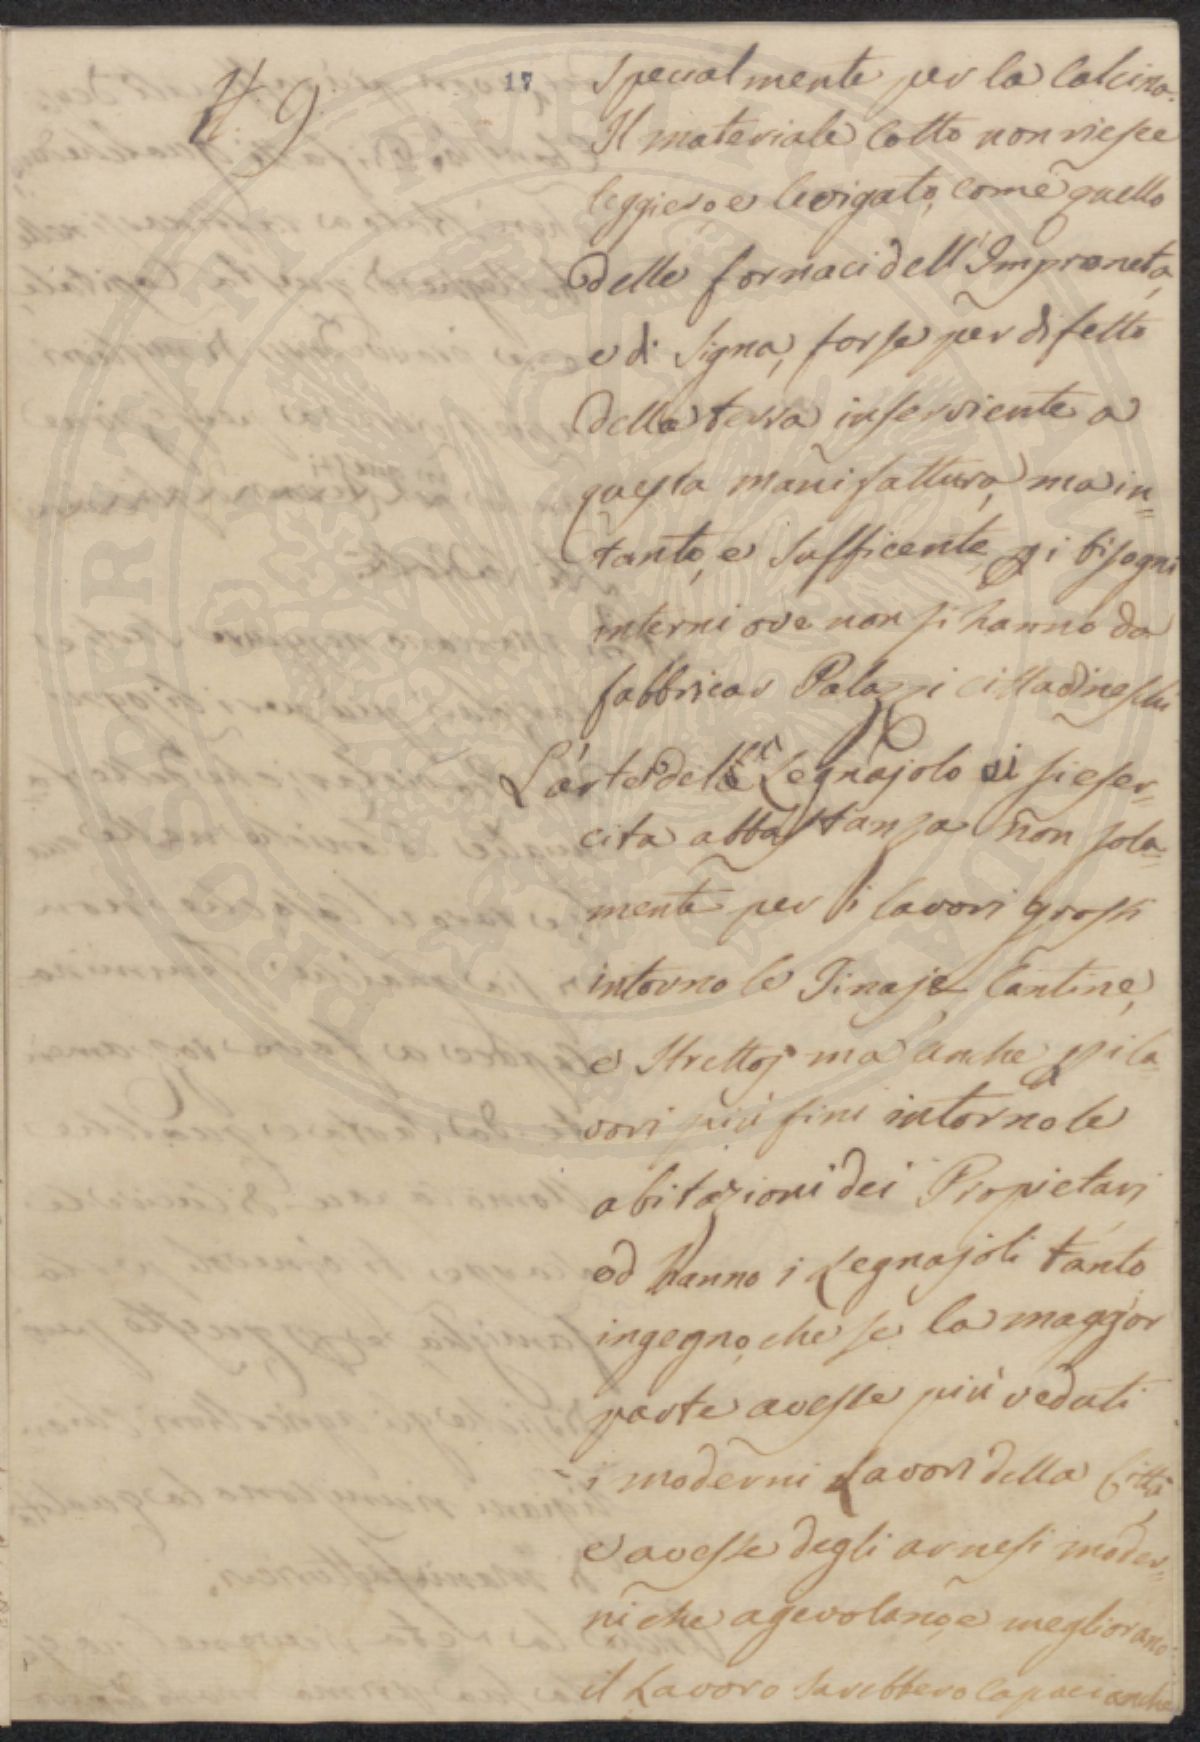 № 9.
17
specialmente per la Calcina.
Il materiale Cotto non riesce
leggiero, e levigato, come quello
delle fornaci dell'Impruneta,
e di Signa, forse per difetto
della terra inserviente a
questa manifattura, ma in=
tanto, e sufficente, pi bisogni
interni ove non si hanno da
fabbricar Palazzi cittadineschi
L'arte del Legnajolo si eser=
cita abbastanza non sola=
mente per i lavori grossi
intorno le Tinaje, Cantine,
e Strettoj ma anche pi la=
vori più fini intorno le
abitazioni dei Propietarj
ed hanno i Legnajoli tanto
ingegno, che se la maggior
parte avesse più veduti
i moderni Lavori della Città,
e avesse degli arnesi moder=
ni che agevolano, e megliorano
il Lavoro sarebbero capaci anche